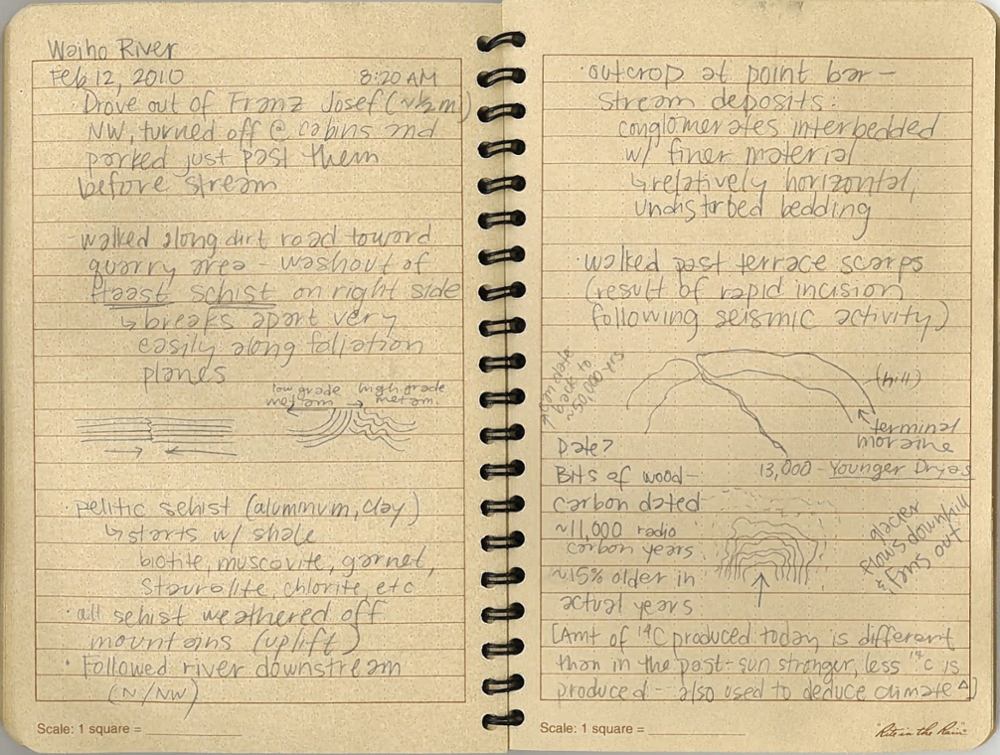 Waiho River
Feb 12, 2010 8:20 AM
· Drove out of Franz Josef (~½ m)
NW, turned off @ cabins and
parked just past them
before stream
- walked along dirt road toward
quarry area - washout of
Haast Schist on right side
↳ breaks apart very
easily along foliation
planes
low grade metam. high grade metam.
· pelitic schist (aluminum, clay)
↳ starts w/ shale
biotite, muscovite, garnet,
staurolite, chlorite, etc
· all schist weathered off
mountains (uplift)
· Followed river downstream
(N/NW)
Scale: 1 square =
· outcrop at point bar -
stream deposits:
conglomerates interbedded
w/ finer material
↳ relatively horizontal,
undisturbed bedding
· walked past terrace scarps
(result of rapid incision
following seismic activity)
can date
back to
~50,000 yrs
(hill)
terminal
moraine
Date?
13,000 - Younger Dryas
Bits of wood -
carbon dated
~11,000 radio
carbon years
~15% older in
actual years
glacier
flows downhill
& fans out
[Amt of ¹⁴C produced today is different
than in the past - sun stronger, less ¹⁴C is
produced - also used to deduce climate Δ]
Scale: 1 square =
"Rite in the Rain"